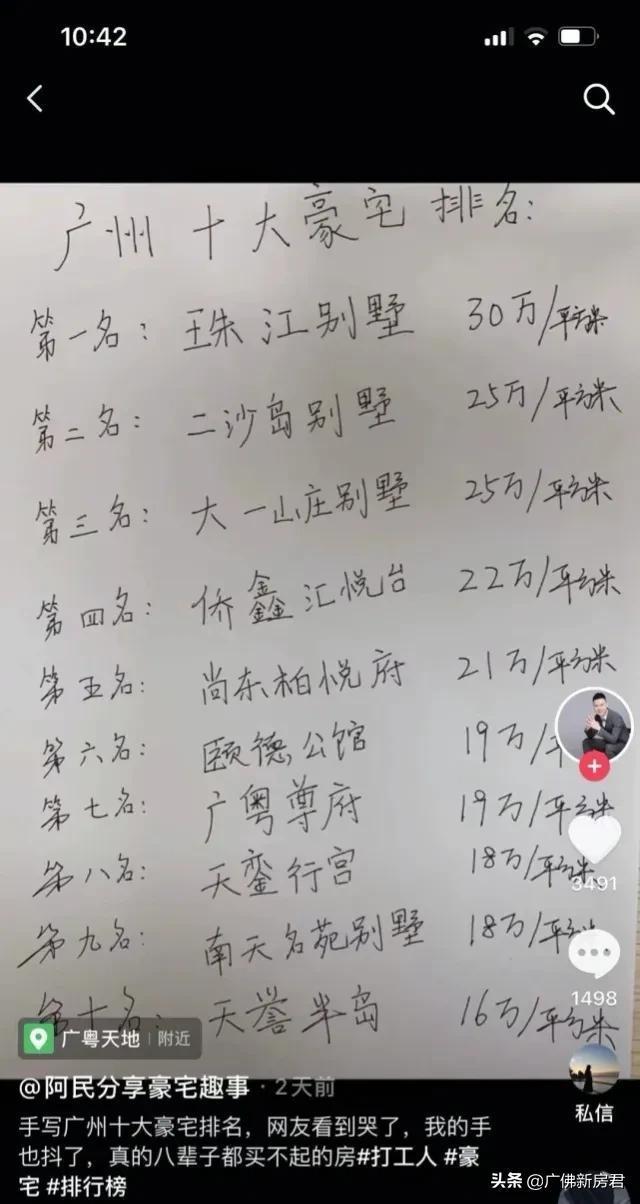 10:42
广州十大豪宅排名:
第一名: 珠江别墅 30万/平方米
第二名: 二沙岛别墅 25万/平方米
第三名: 大一山庄别墅 25万/平方米
第四名: 侨鑫汇悦台 22万/平方米
第五名: 尚东柏悦府 21万/平方米
第六名: 颐德公馆 19万/平
第七名: 广粤尊府 19万/平方米
第八名: 天銮行宫 18万/平方米
第九名: 南天名苑别墅 18万/平方米
第十名: 天誉半岛 16万/平方米
3491
1498
广粤天地 附近
私信
@阿民分享豪宅趣事 · 2天前
手写广州十大豪宅排名，网友看到哭了，我的手
也抖了，真的八辈子都买不起的房#打工人 #豪
宅 #排行榜
头条 @广佛新房君